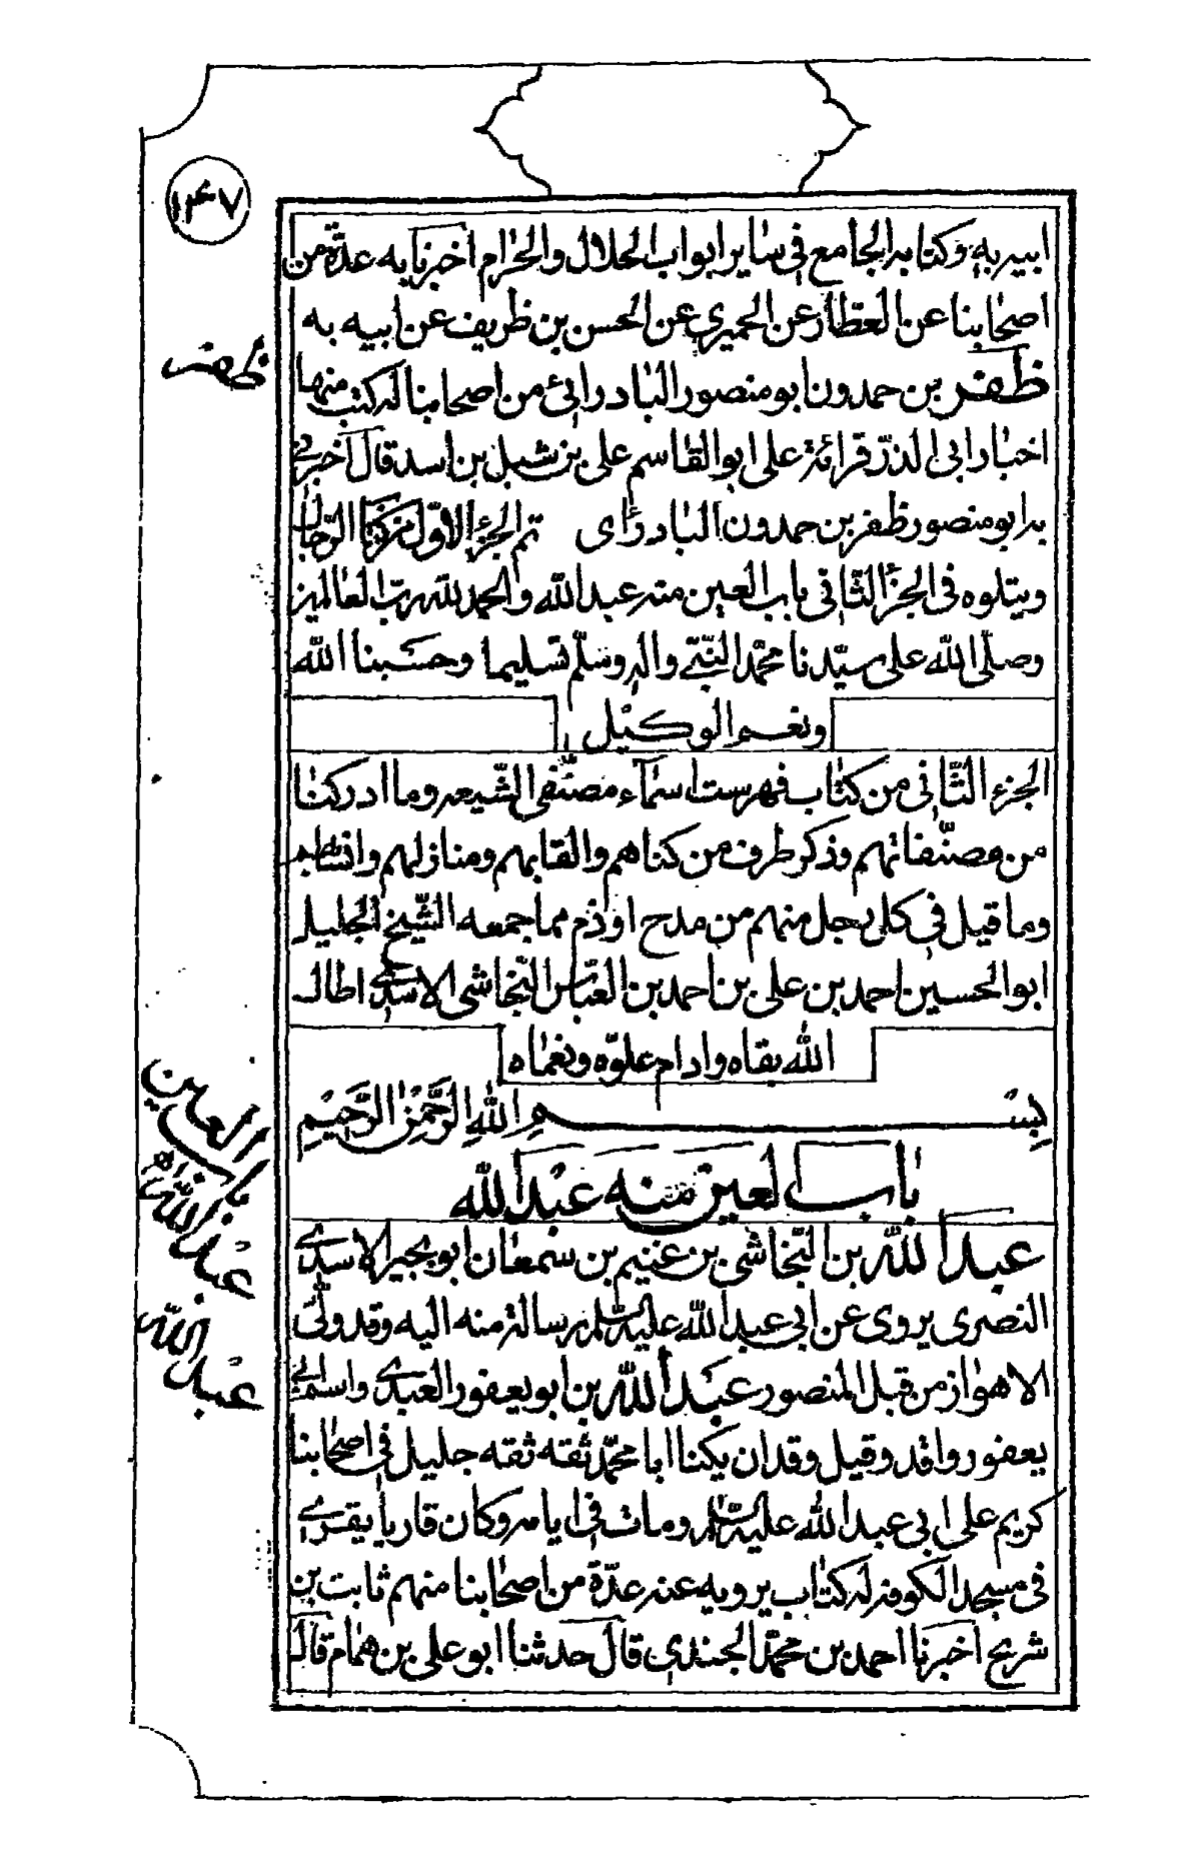 ١٤٧
ابيه به وكتابه الجامع في ساير ابواب الحلال والحرام اخبرنا به عدة من
اصحابنا عن العطار عن الحميري عن الحسن بن ظريف عن ابيه به
ظفر
ظفر بن حمدون ابو منصور البادرائي من اصحابنا له كتب منها
اخبار ابي الذر قرائة على ابو القاسم علي بن شبل بن اسد قال اخبرني
به ابو منصور ظفر بن حمدون البادرائ تم الجزء الاول من كتاب الرجال
ويتلوه في الجزء الثاني باب العين منه عبد الله والحمد لله رب العالمين
وصلى الله على سيدنا محمد النبي واله وسلم تسليما وحسبنا الله
ونعم الوكيل
الجزء الثاني من كتاب فهرست اسماء مصنفي الشيعه وما ادركنا
من مصنفاتهم وذكر طرف من كناهم والقابهم ومنازلهم وانسابهم
وما قيل في كل رجل منهم من مدح او ذم مما جمعه الشيخ الجليل
ابو الحسين احمد بن علي بن احمد بن العباس النجاشي الاسدي اطال
الله بقاه وادام علوه ونعماه
بسم الله الرحمن الرحيم
باب العين
باب العين منه عبد الله
عبد الله
عبد الله بن النجاشي بن عنيم بن سمعان ابو بجير الاسدي
النصري يروي عن ابي عبد الله عليه السلم رسالة منه اليه وقد ولي
عبد الله
الاهواز من قبل المنصور عبد الله بن ابو يعفور العبدي واسم ابي
يعفور واقد وقيل وقدان يكنا ابا محمد ثقه ثقه جليل في اصحابنا
كريم على ابي عبد الله عليه السلم ومات في ايامه وكان قاريا يقرئ
في مسجد الكوفه له كتاب يرويه عنه عدة من اصحابنا منهم ثابت بن
شريح اخبرنا احمد بن محمد الجندي قال حدثنا ابو علي بن همام قال